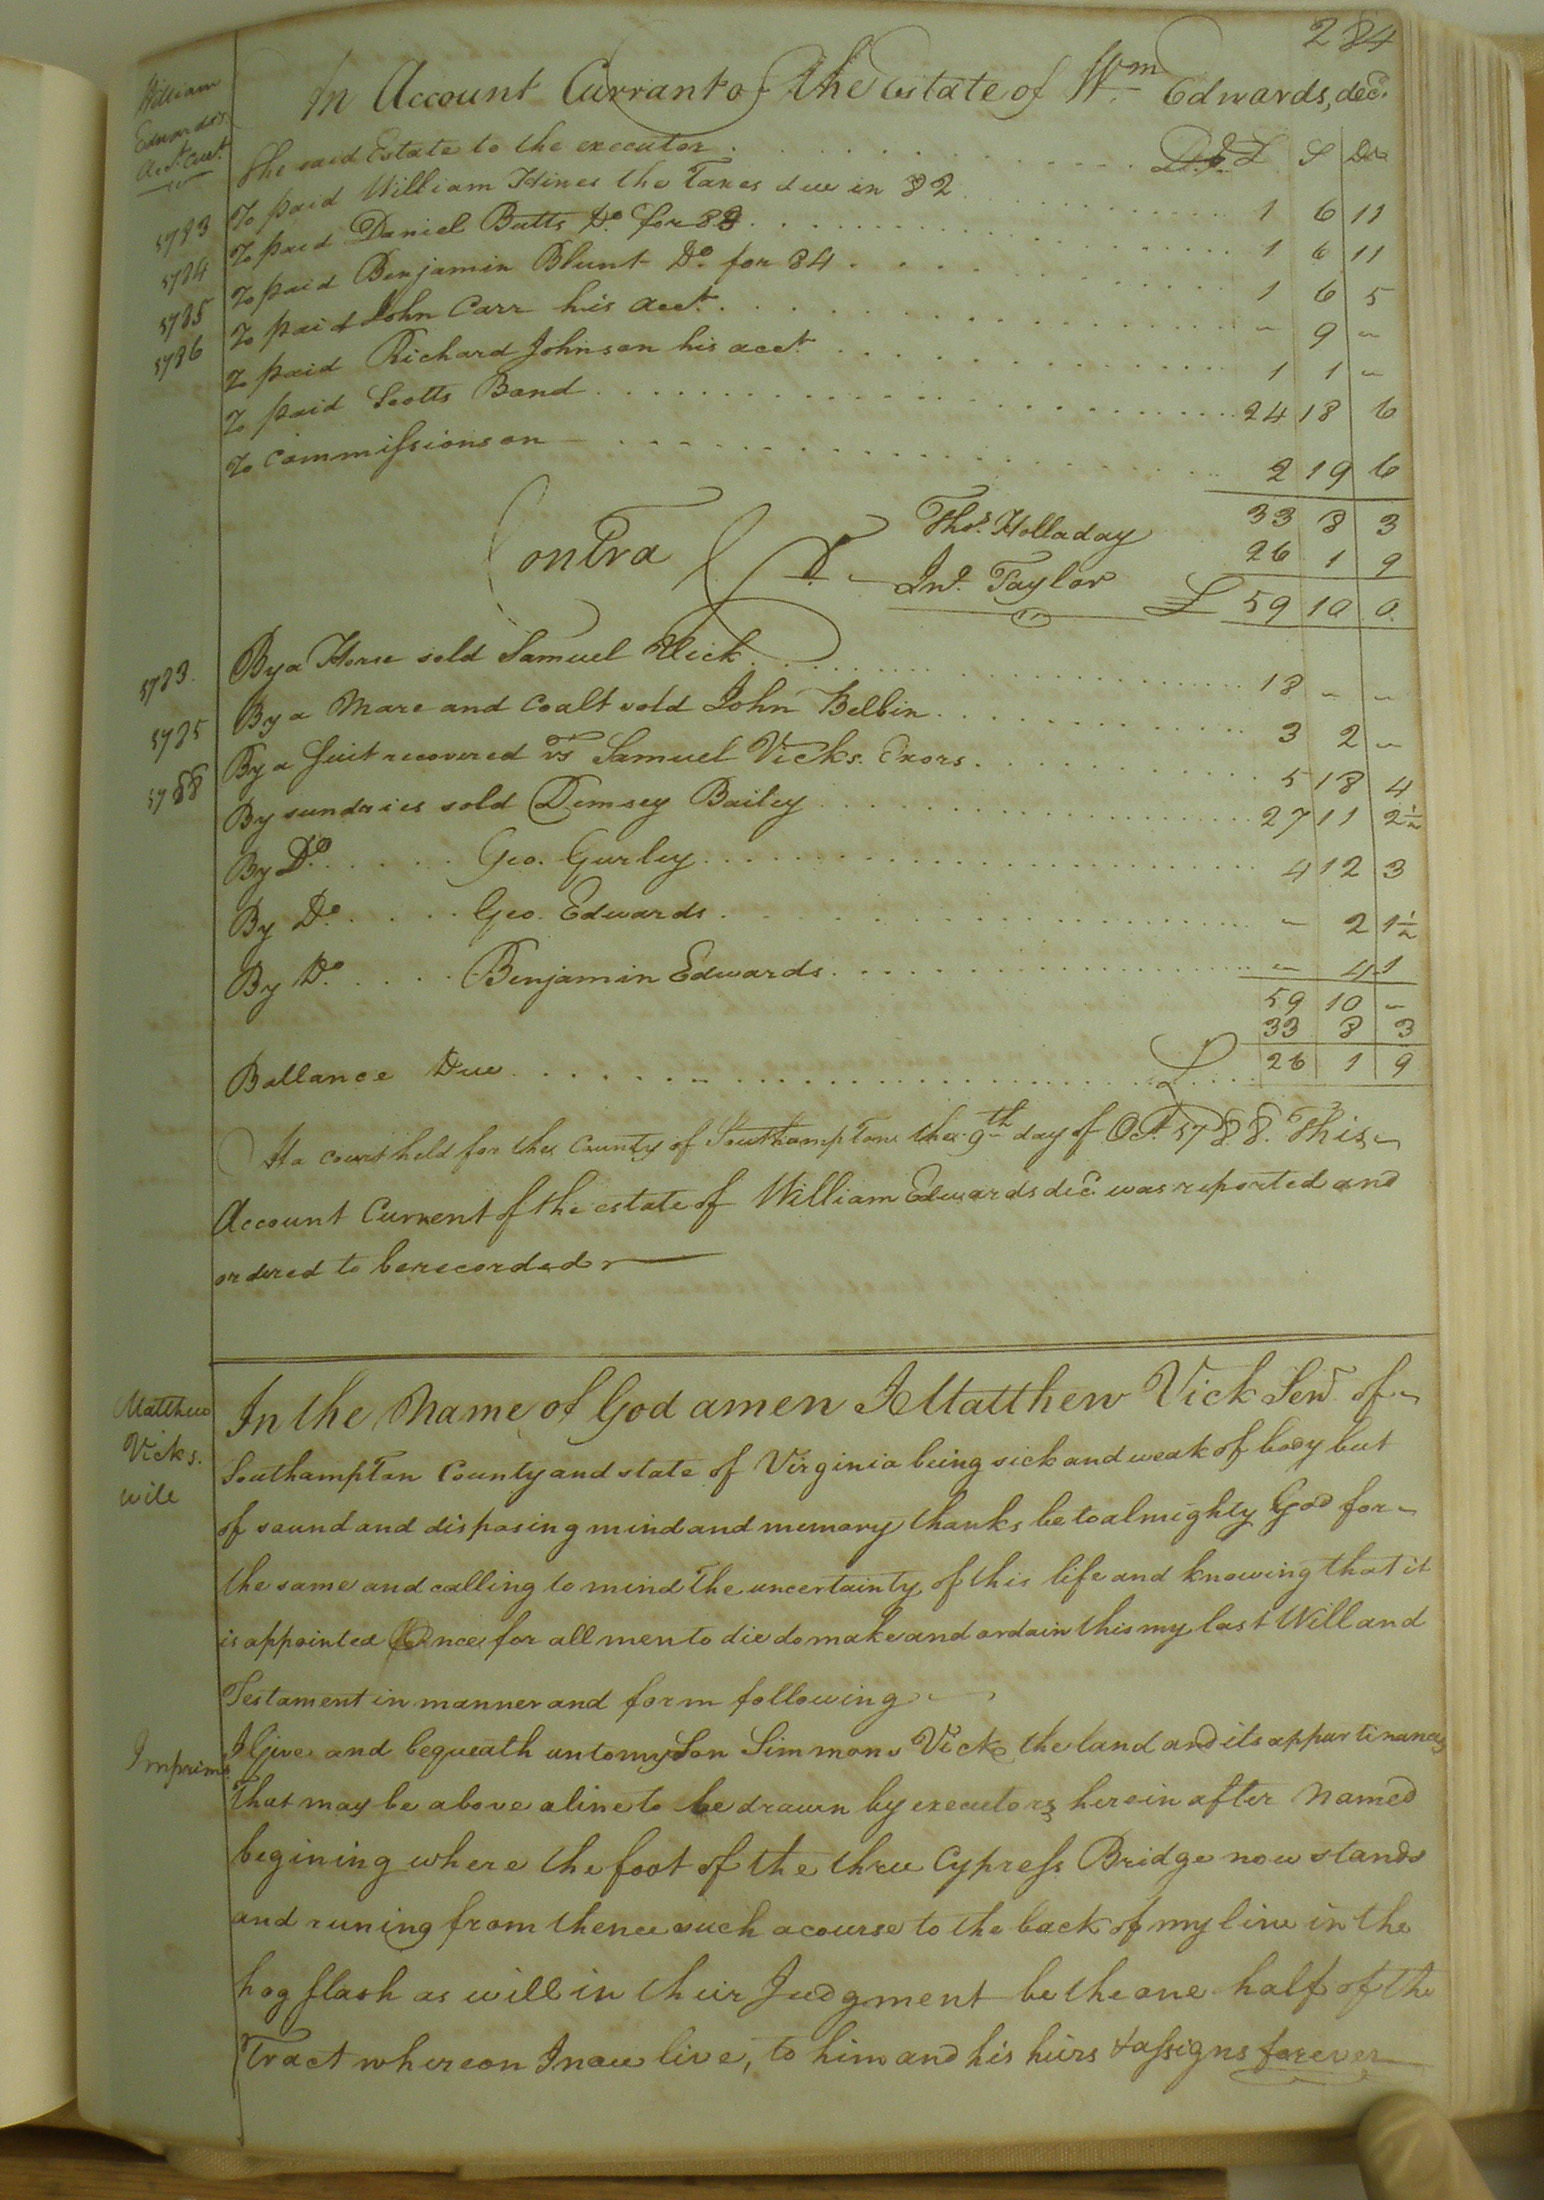 284
William
Edwards's
Acct. Curt.
In Account Currant of The Estate of Wm. Edwards, decd.
The said Estate to the executor . . . Dr. £ S Ds
1783 To paid William Hines the Taxes due in 82 . . . 1 6 11
1784 To paid Daniel Butts Do. for 83 . . . 1 6 11
1785 To paid Benjamin Blunt Do. for 84 . . . 1 6 5
1786 To paid John Carr his acct. . . . - 9 -
To paid Richard Johnson his acct. . . . 1 1 -
To paid Scotts Bond . . . 24 18 6
To Commissions on . . . 2 19 6
33 8 3
Contra Cr. Thos. Holladay 26 1 9
Jno. Taylor £ 59 10 0
1783. By a Horse sold Samuel Vick . . . 18 - -
1785 By a Mare and Coalt sold John Belbin . . . 3 2 -
1788 By a Suit recovered vs Samuel Vicks. Exors. . . . 5 18 4
By sundries sold Demsey Bailey . . . 27 11 2½
By Do. . . . Geo. Gurley . . . 4 12 3
By Do. . . . Geo. Edwards . . . - 2 1½
By Do. . . . Benjamin Edwards . . . - 4 1
59 10 -
33 8 3
Ballance Due . . . £ 26 1 9
At a court held for the County of Southampton the 9th day of Oct. 1788. This
Account Current of the estate of William Edwards decd. was reported and
ordered to be recorded
Matthew
Vicks.
will
In the Name of God amen I Matthew Vick Senr. of
Southampton County and state of Virginia being sick and weak of body but
of sound and disposing mind and memory thanks be to almighty God for
the same and calling to mind the uncertainty of this life and knowing that it
is appointed Once for all men to die do make and ordain this my last Will and
Testament in manner and form following
Imprims. I Give and bequeath unto my Son Simmons Vick the land and its appurtinances
That may be above a line to be drawn by executors herein after Named
begining where the foot of the three Cypress Bridge now stands
and runing from thence such a course to the back of my line in the
hog flash as will in their Judgment be the one half of the
Tract whereon I now live, to him and his heirs & assigns forever